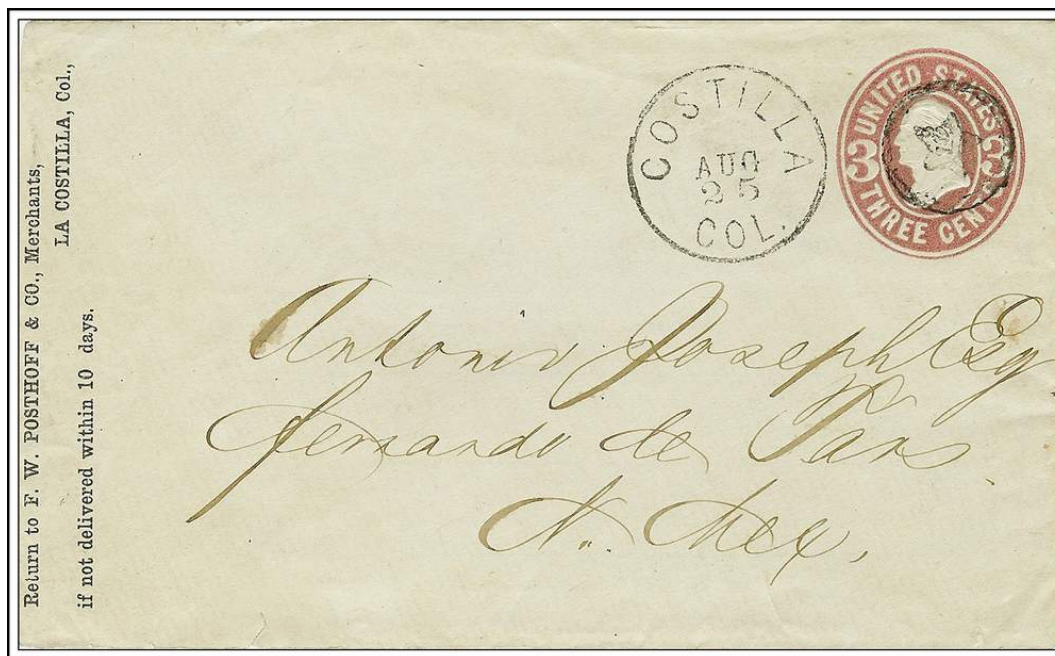 Return to F. W. POSTHOFF & CO., Merchants,
LA COSTILLA, Col.,
if not delivered within 10 days.
COSTILLA
AUG
25
COL.
UNITED STATES
3 3
THREE CENTS
Antonio Joseph Esq
Fernando de Taos
N. Mex.